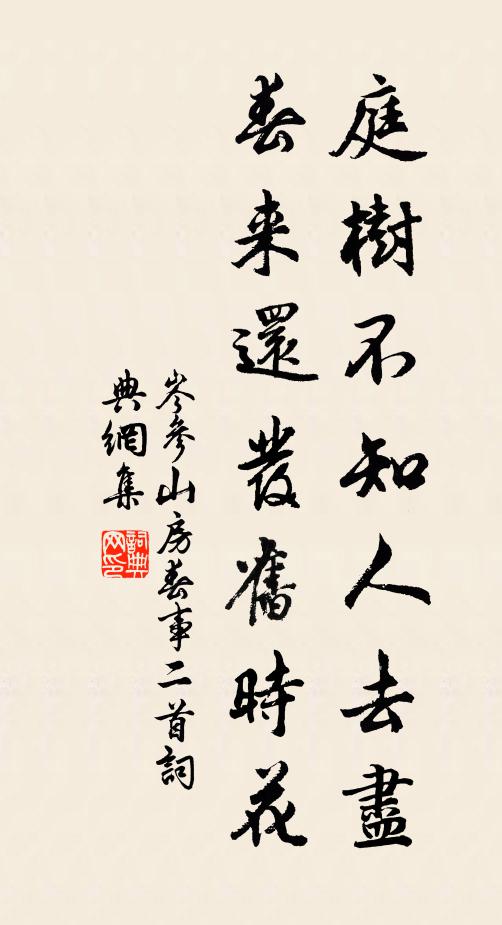 庭樹不知人去盡
春来還發舊時花
岑參山房春事二首詞
典網集
詞典
网印